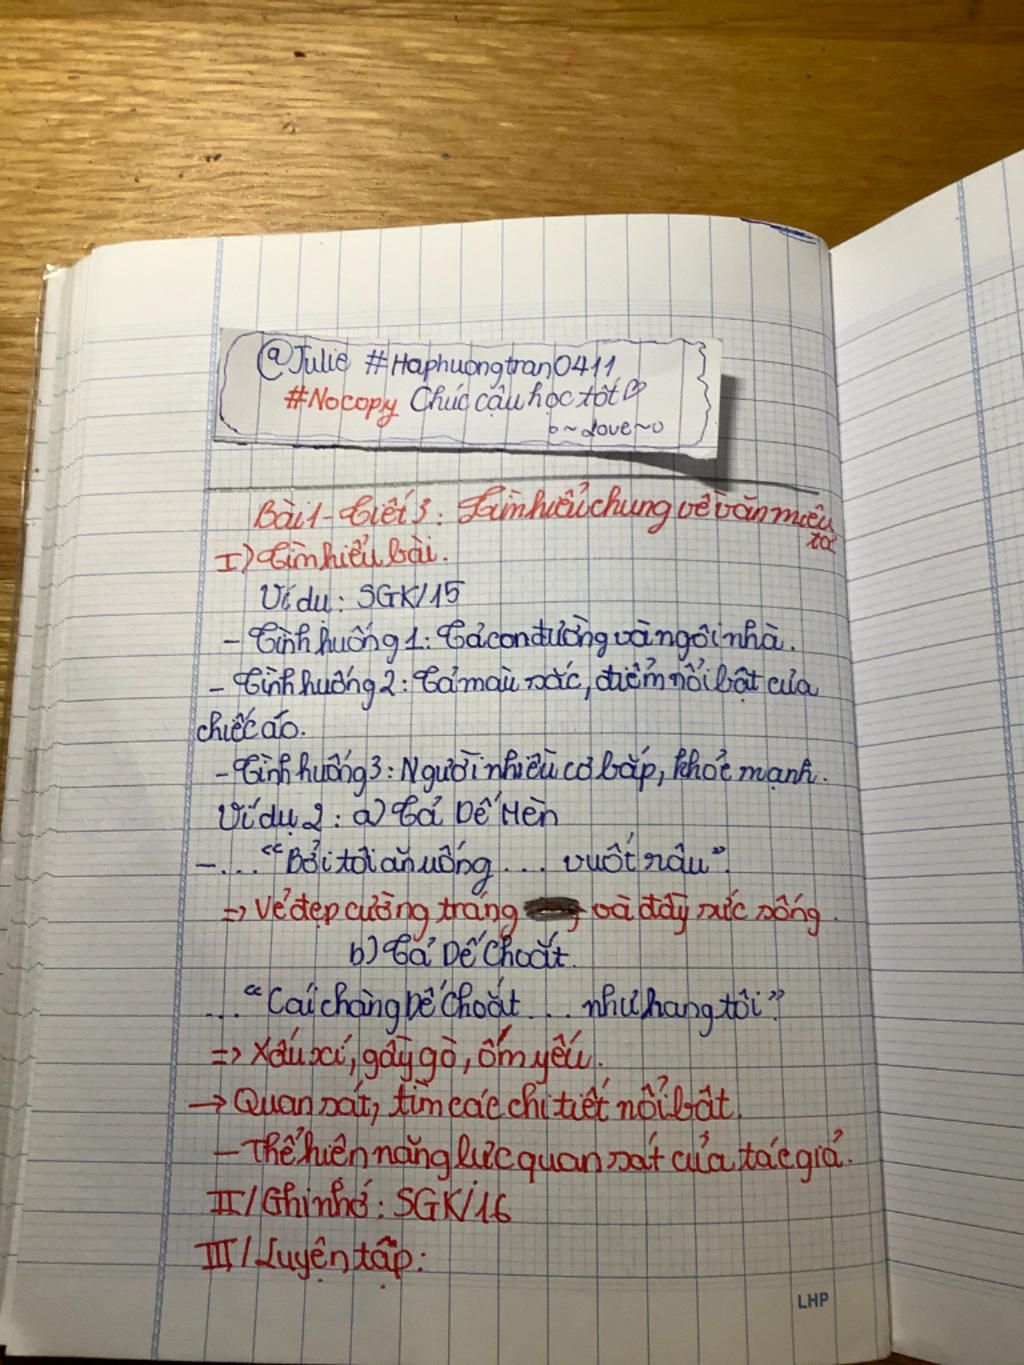 @Julie #Haphuongtran0411
#Nocopy Chúc cậu học tốt♡
o~Love~o
Bài 1 - Tiết 3: Tìm hiểu chung về văn miêu
tả
I) Tìm hiểu bài.
Ví dụ: SGK/15
- Tình huống 1: Tả con đường và ngôi nhà.
- Tình huống 2: Tả màu sắc, điểm nổi bật của
chiếc áo.
- Tình huống 3: Người nhiều cơ bắp, khoẻ mạnh.
Ví dụ 2: a) Tả Dế Mèn
-... "Bởi tôi ăn uống ... vuốt râu".
=> Vẻ đẹp cường tráng và đầy sức sống.
b) Tả Dế Choắt.
... "Cái chàng Dế Choắt ... như hang tôi".
=> Xấu xí, gầy gò, ốm yếu.
→ Quan sát, tìm các chi tiết nổi bật.
- Thể hiện năng lực quan sát của tác giả.
II/ Ghi nhớ: SGK/16
III/ Luyện tập:
LHP